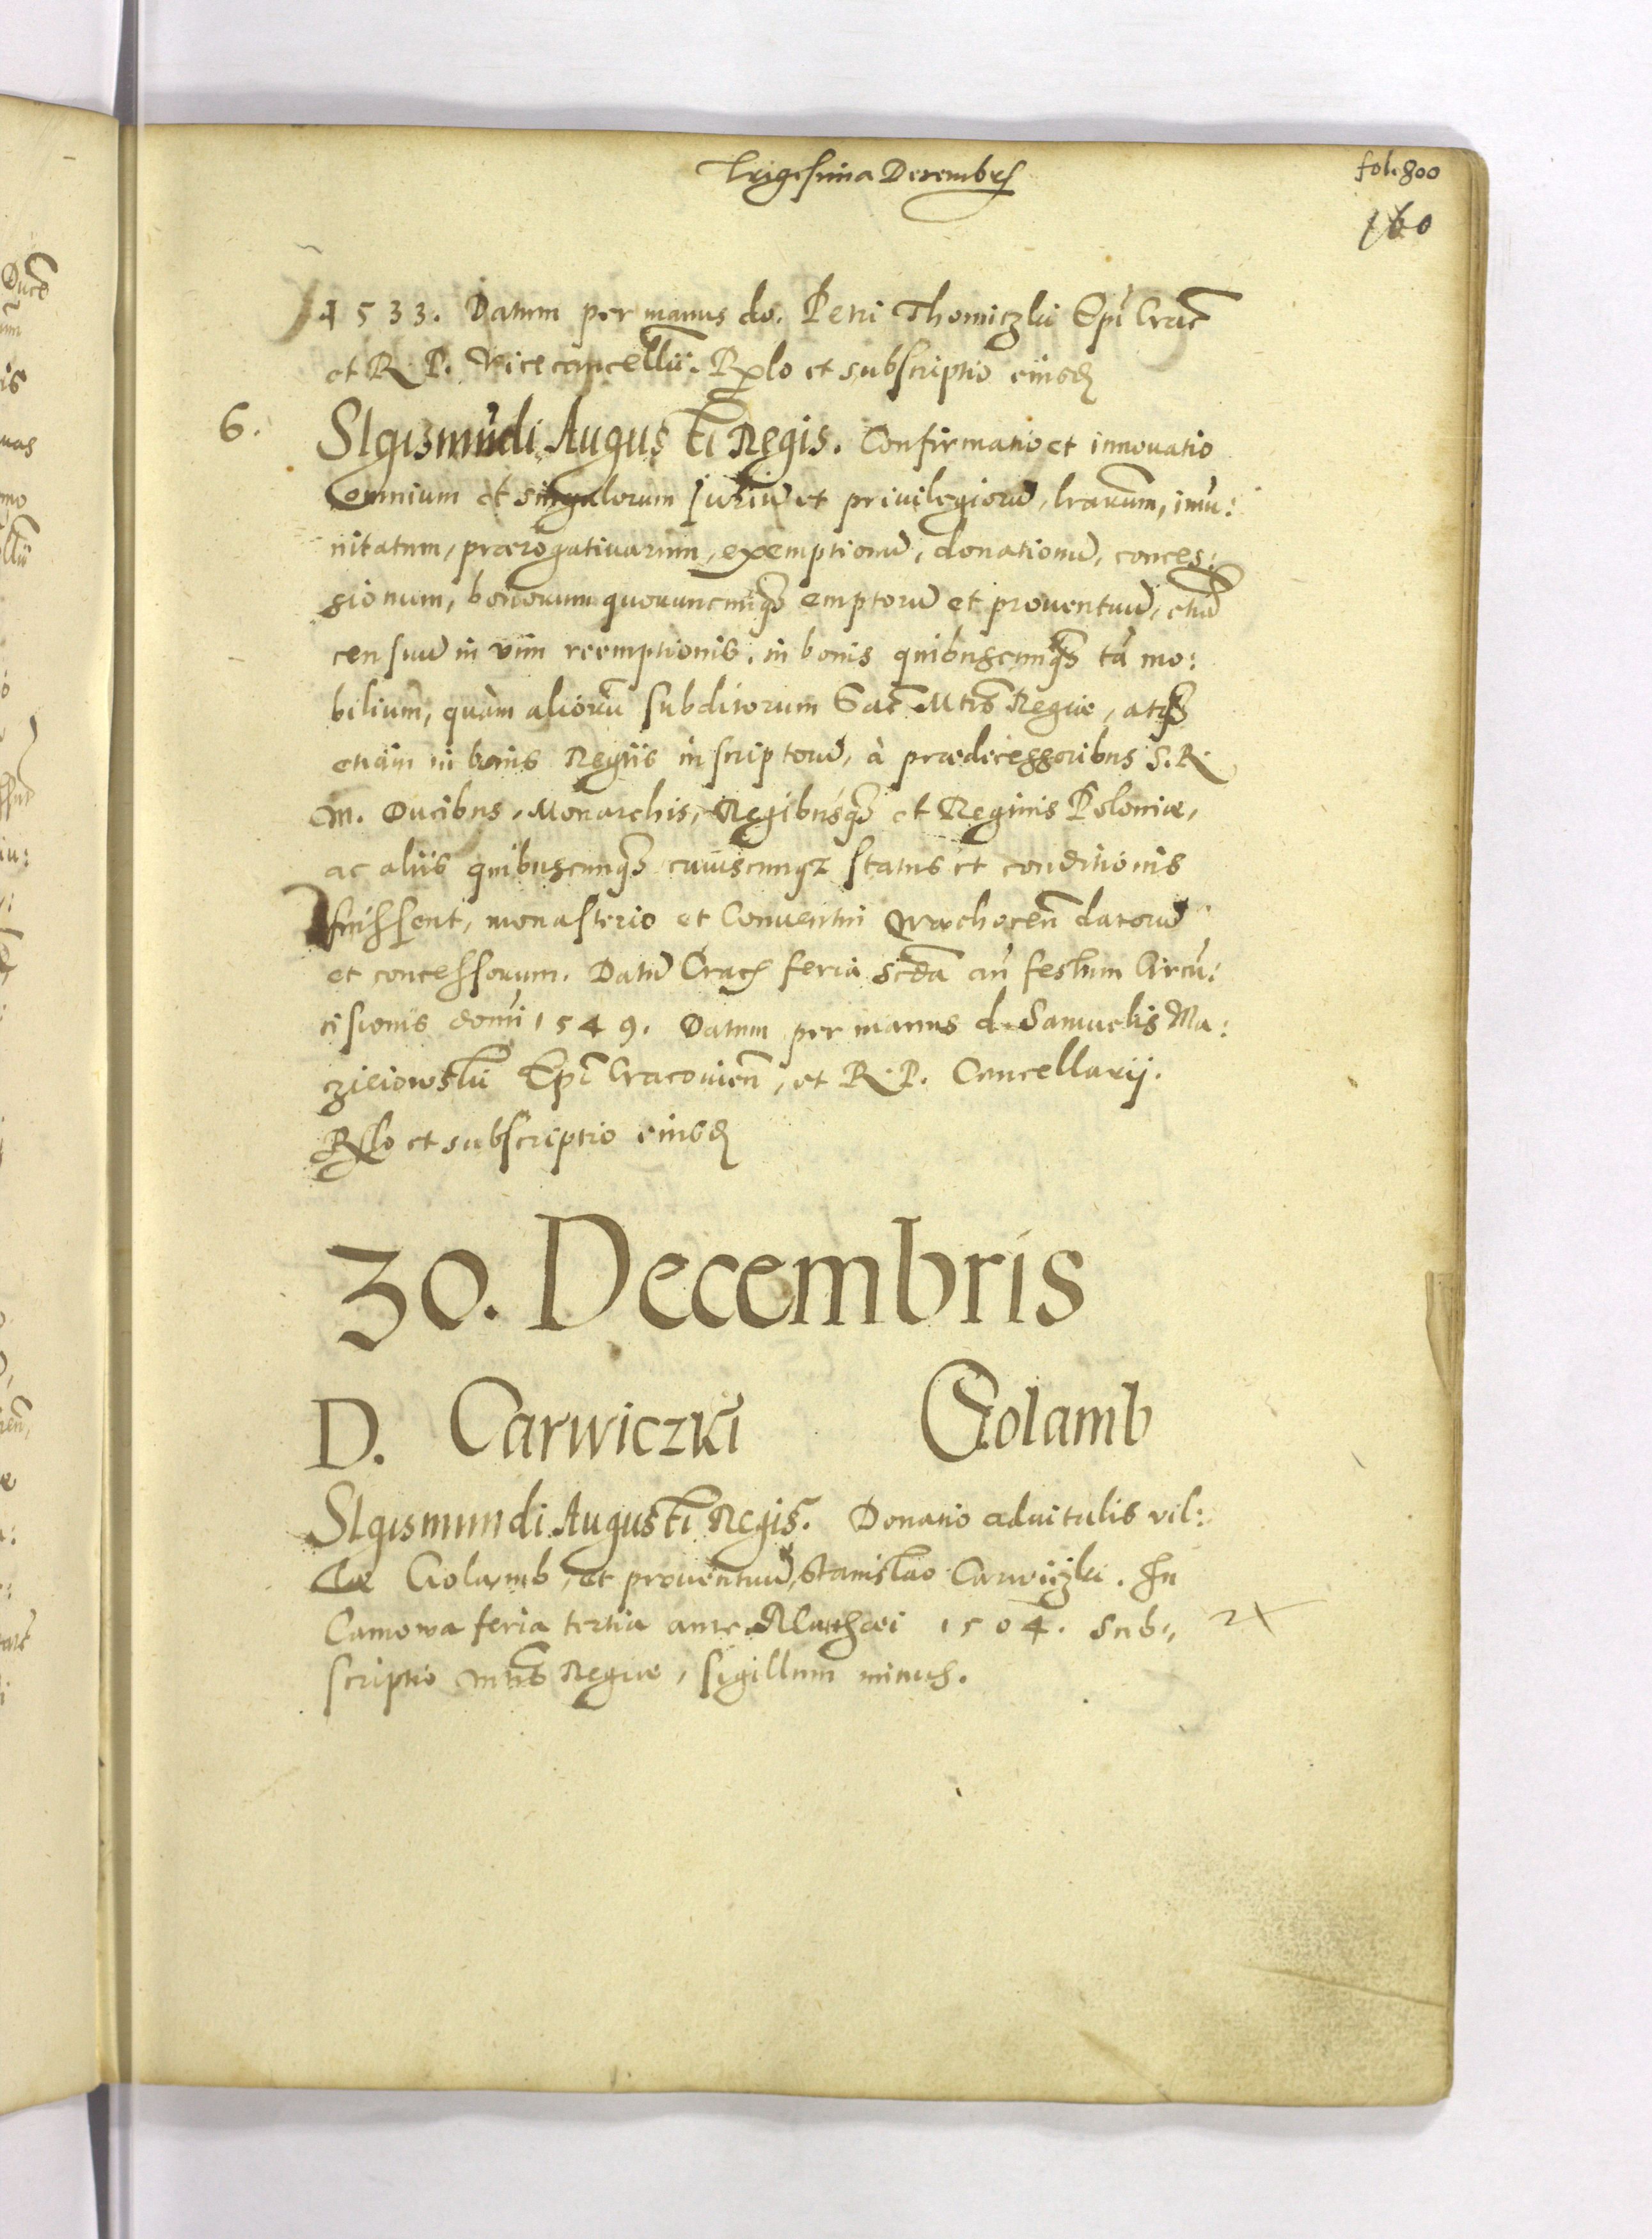 Trigesima Decembris
fol. 800
160
1533. Datum per manus do. Petri Thomiczki Epi Crac
et R. P. Vicecancellii. Rxlo et subscriptio eiusd
6. SIgismudi Augusti Regis. Confirmatio et innovatio
omnium et singulorum iuriu et privilegioru, lrarum, imu:
nitatum, prærogativarum, exemptionu, donationu, conces:
sionum, bonorum quorumcunq emptoru et proventuu, etia
censuu in vim reemptionis, in bonis quibuscunq tâ mo:
bilium, quàm alioru subditorum Sac Mtis Regiæ, atq
etiam in bonis Regiis inscriptoru, à prædecessoribus S. R.
M. Ducibus, Monarchis, Regibusq et Reginis Poloniæ,
ac aliis quibuscunq cuiuscunqz status et conditionis
fuissent, monasterio et Conventui Wachocen datoru
et concessorum. Datu Crac feria scda an festum Circu:
cisionis domi 1549. Datum per manus d. Samuelis Ma:
cziejowski Epi Cracovien, et R. P. Cancellarij.
Rxlo et subscriptio eiusd
30. Decembris
D. Carwiczki Golamb
SIgismundi Augusti Regis. Donatio advitalis vil:
læ Golamb, et proventuu, Stanislao Carwiczki. In
Camowa feria tertia ante Matthæi 1504. Sub:
scriptio Mtis Regiæ, sigillum minus.